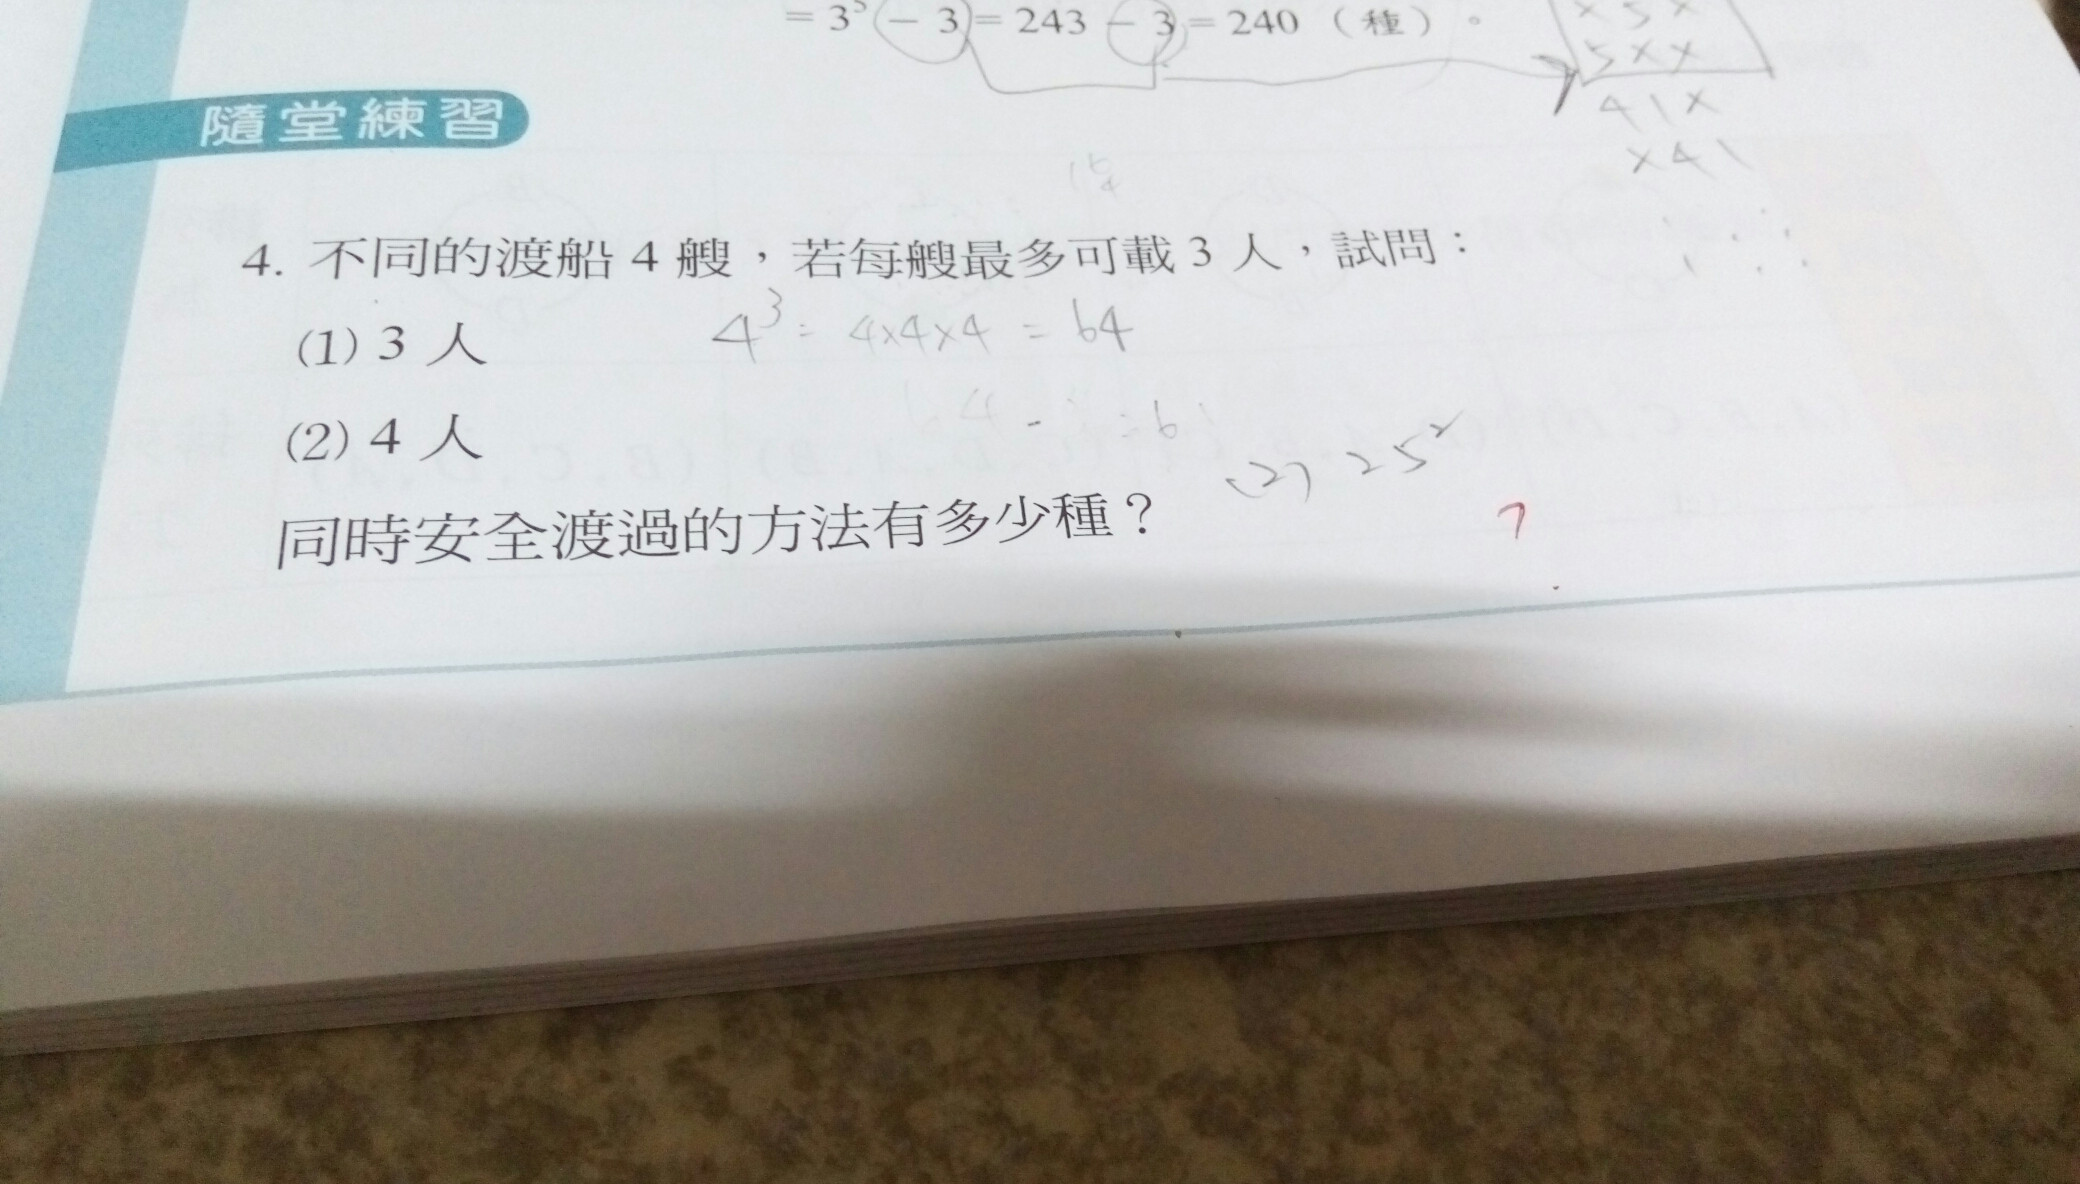 = 3⁵ − 3 = 243 − 3 = 240 （種）。
× 5 ×
5 × ×
4 1 ×
× 4 1
隨堂練習
4. 不同的渡船 4 艘，若每艘最多可載 3 人，試問：
(1) 3 人
4³ = 4×4×4 = 64
(2) 4 人
(2) 25²
同時安全渡過的方法有多少種？
?